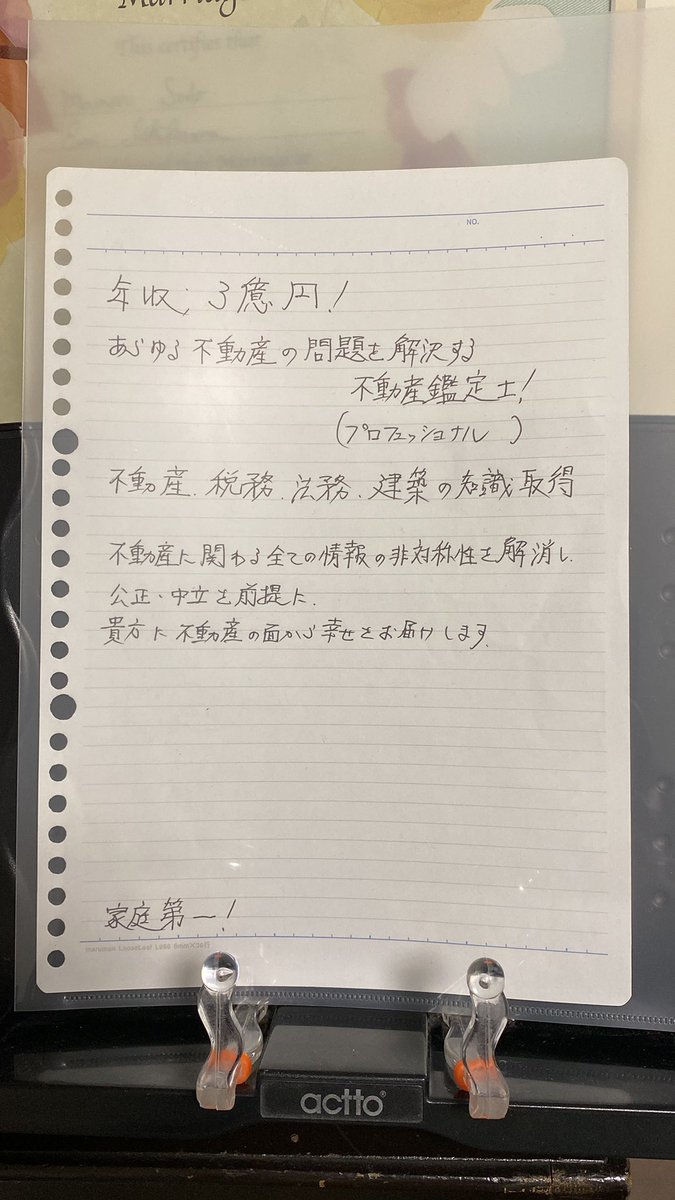 This certifies that
NO.
年収; 3億円!
あらゆる不動産の問題を解決する
不動産鑑定士!
(プロフェッショナル )
不動産、税務、法務、建築の知識取得
不動産に関わる全ての情報の非対称性を解消し、
公正・中立を前提に、
貴方に不動産の面から幸せをお届けします。
家庭第一!
actto